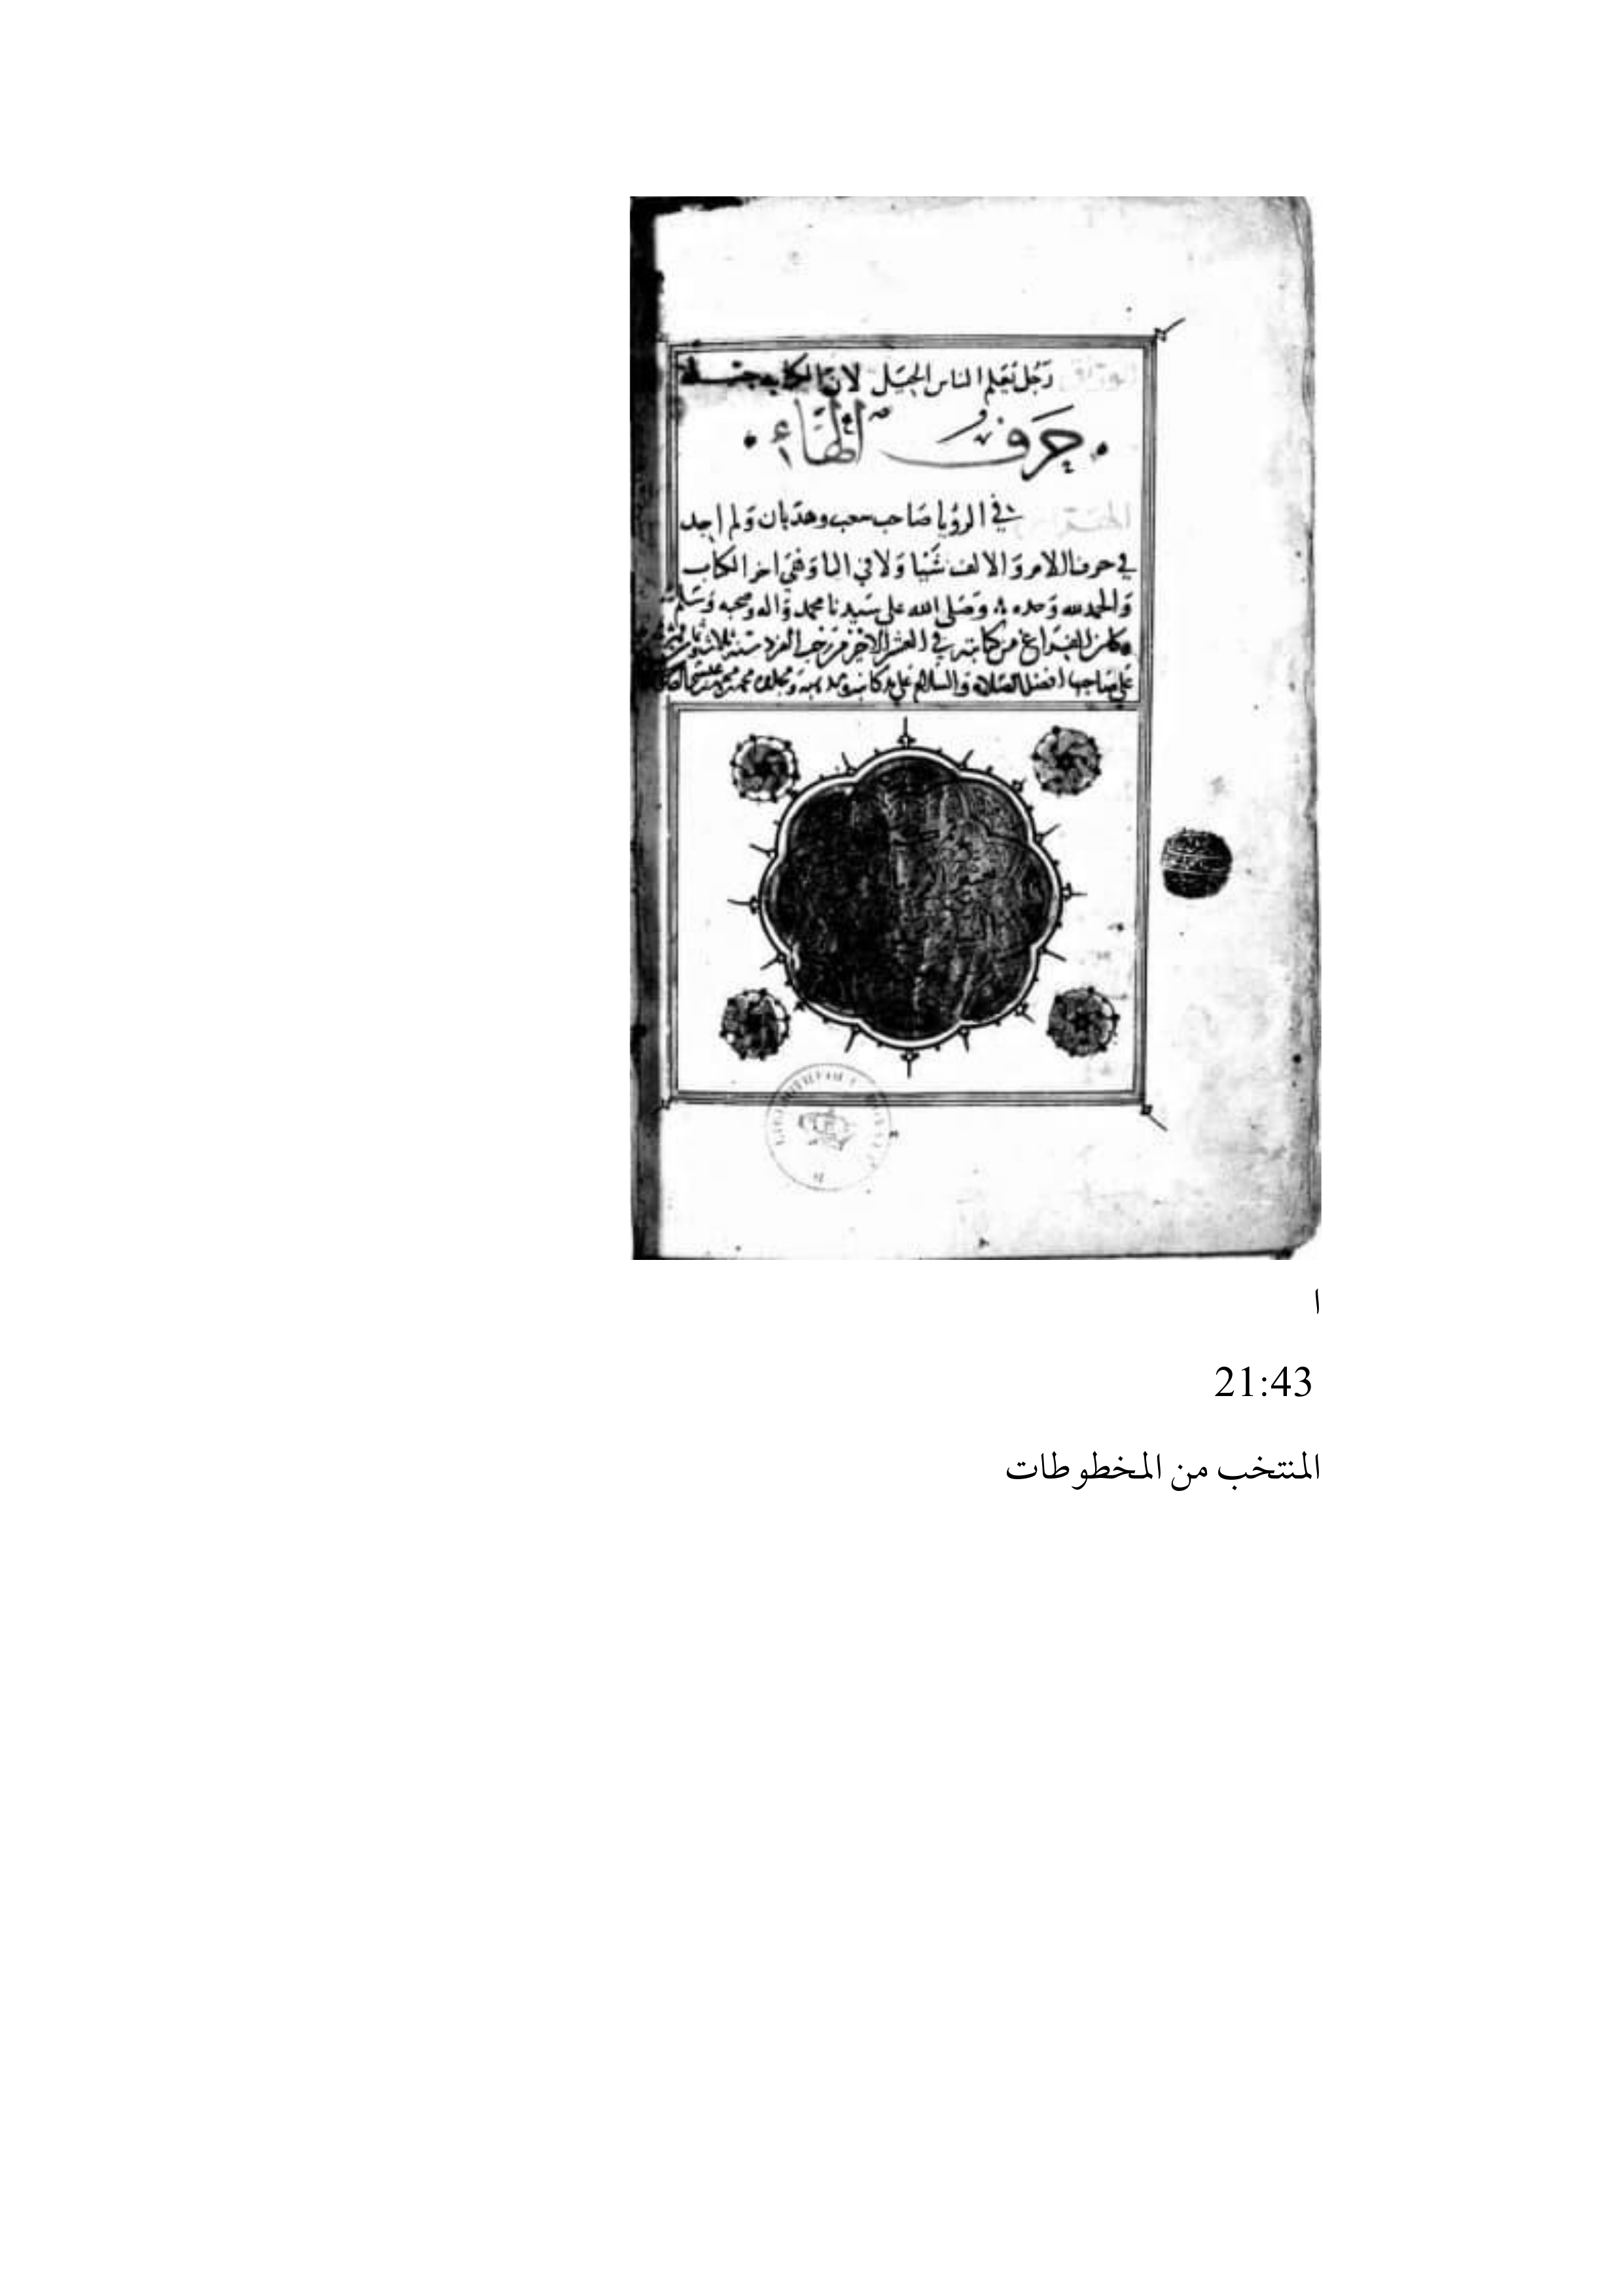 رَجُل تعَلم الناس الحيَل لان الكتابه حيله
حَرفُ الهَاءِ
في الرؤيا صَاحب وهديان وَلم اجد
في حرف اللام وَالالف شَيا وَلا في اليا وَفي اخر الكتاب
وَالحمد لله وَحده وَصَلى الله على سَيدنا محمد وَاله وصحبه وَسَلم
وكان الفراغ من كتابته في العشر الاخر من رجب الفرد سنة ثلاث
على صاحبها افضل الصلاة والسلام على يد كاتبه محمد
ا
21:43
المنتخب من المخطوطات